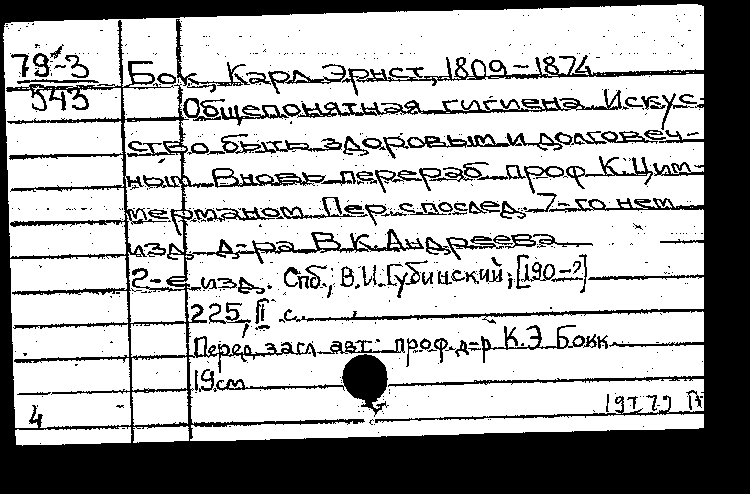 79-3
543
Бок, Карл Эрнст, 1809-1874
Общепонятная гигиена Искус-
ство быть здоровым и долговеч-
ным Вновь перераб проф К. Цим-
мерманом Пер. с послед. 7-го нем
изд. д-ра В.К. Андреева
2-е изд. Спб., В.И. Губинский, [190-?]
225, II с.
Перед загл авт: проф. д-р К.Э Бокк
19см
4